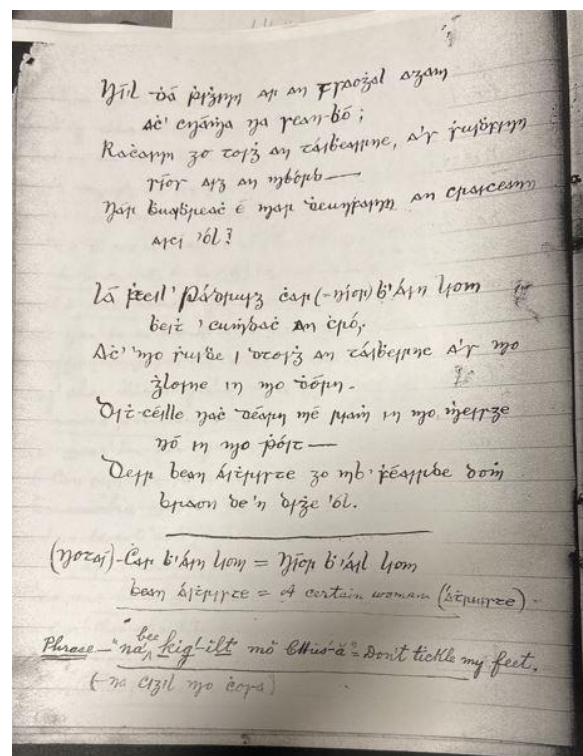 Níl ḋá ṗiġinn ar an traoġal agam
Aċ' cnáṁa na sean-ḃó;
Raċainn go toiġ an táiḃeairne, a's ṡuiḋfinn
síos aig an mbórd—
Nár ḃuaiḋreaċ é mar ḋeunfainn an craiceann
aici 'ól?
Lá Ḟéil' Pádruig ċar (-níor) b'áin liom
beiṫ 'cuṁdaċ an ċró,
Aċ' mo ṡuiḋe i dtoiġ an táiḃeirne a's mo
ġloine in mo ḋórn.
Díṫ-céille naċ ḋéarn mé riaṁ in mo ṁeisge
nó in mo ṗóit—
Deir bean áiṫriste go mb' ḟéairrde doṁ
braon de'n diġe 'ól.
(Notaí)-Ċar b'áin liom = Níor b'áil liom
bean áiṫriste = A certain woman (áiṫriste) -
Phrase—"na bee kig'-ilt mŏ chus-ă" = Don't tickle my feet.
(-na cigil mo ċosa)